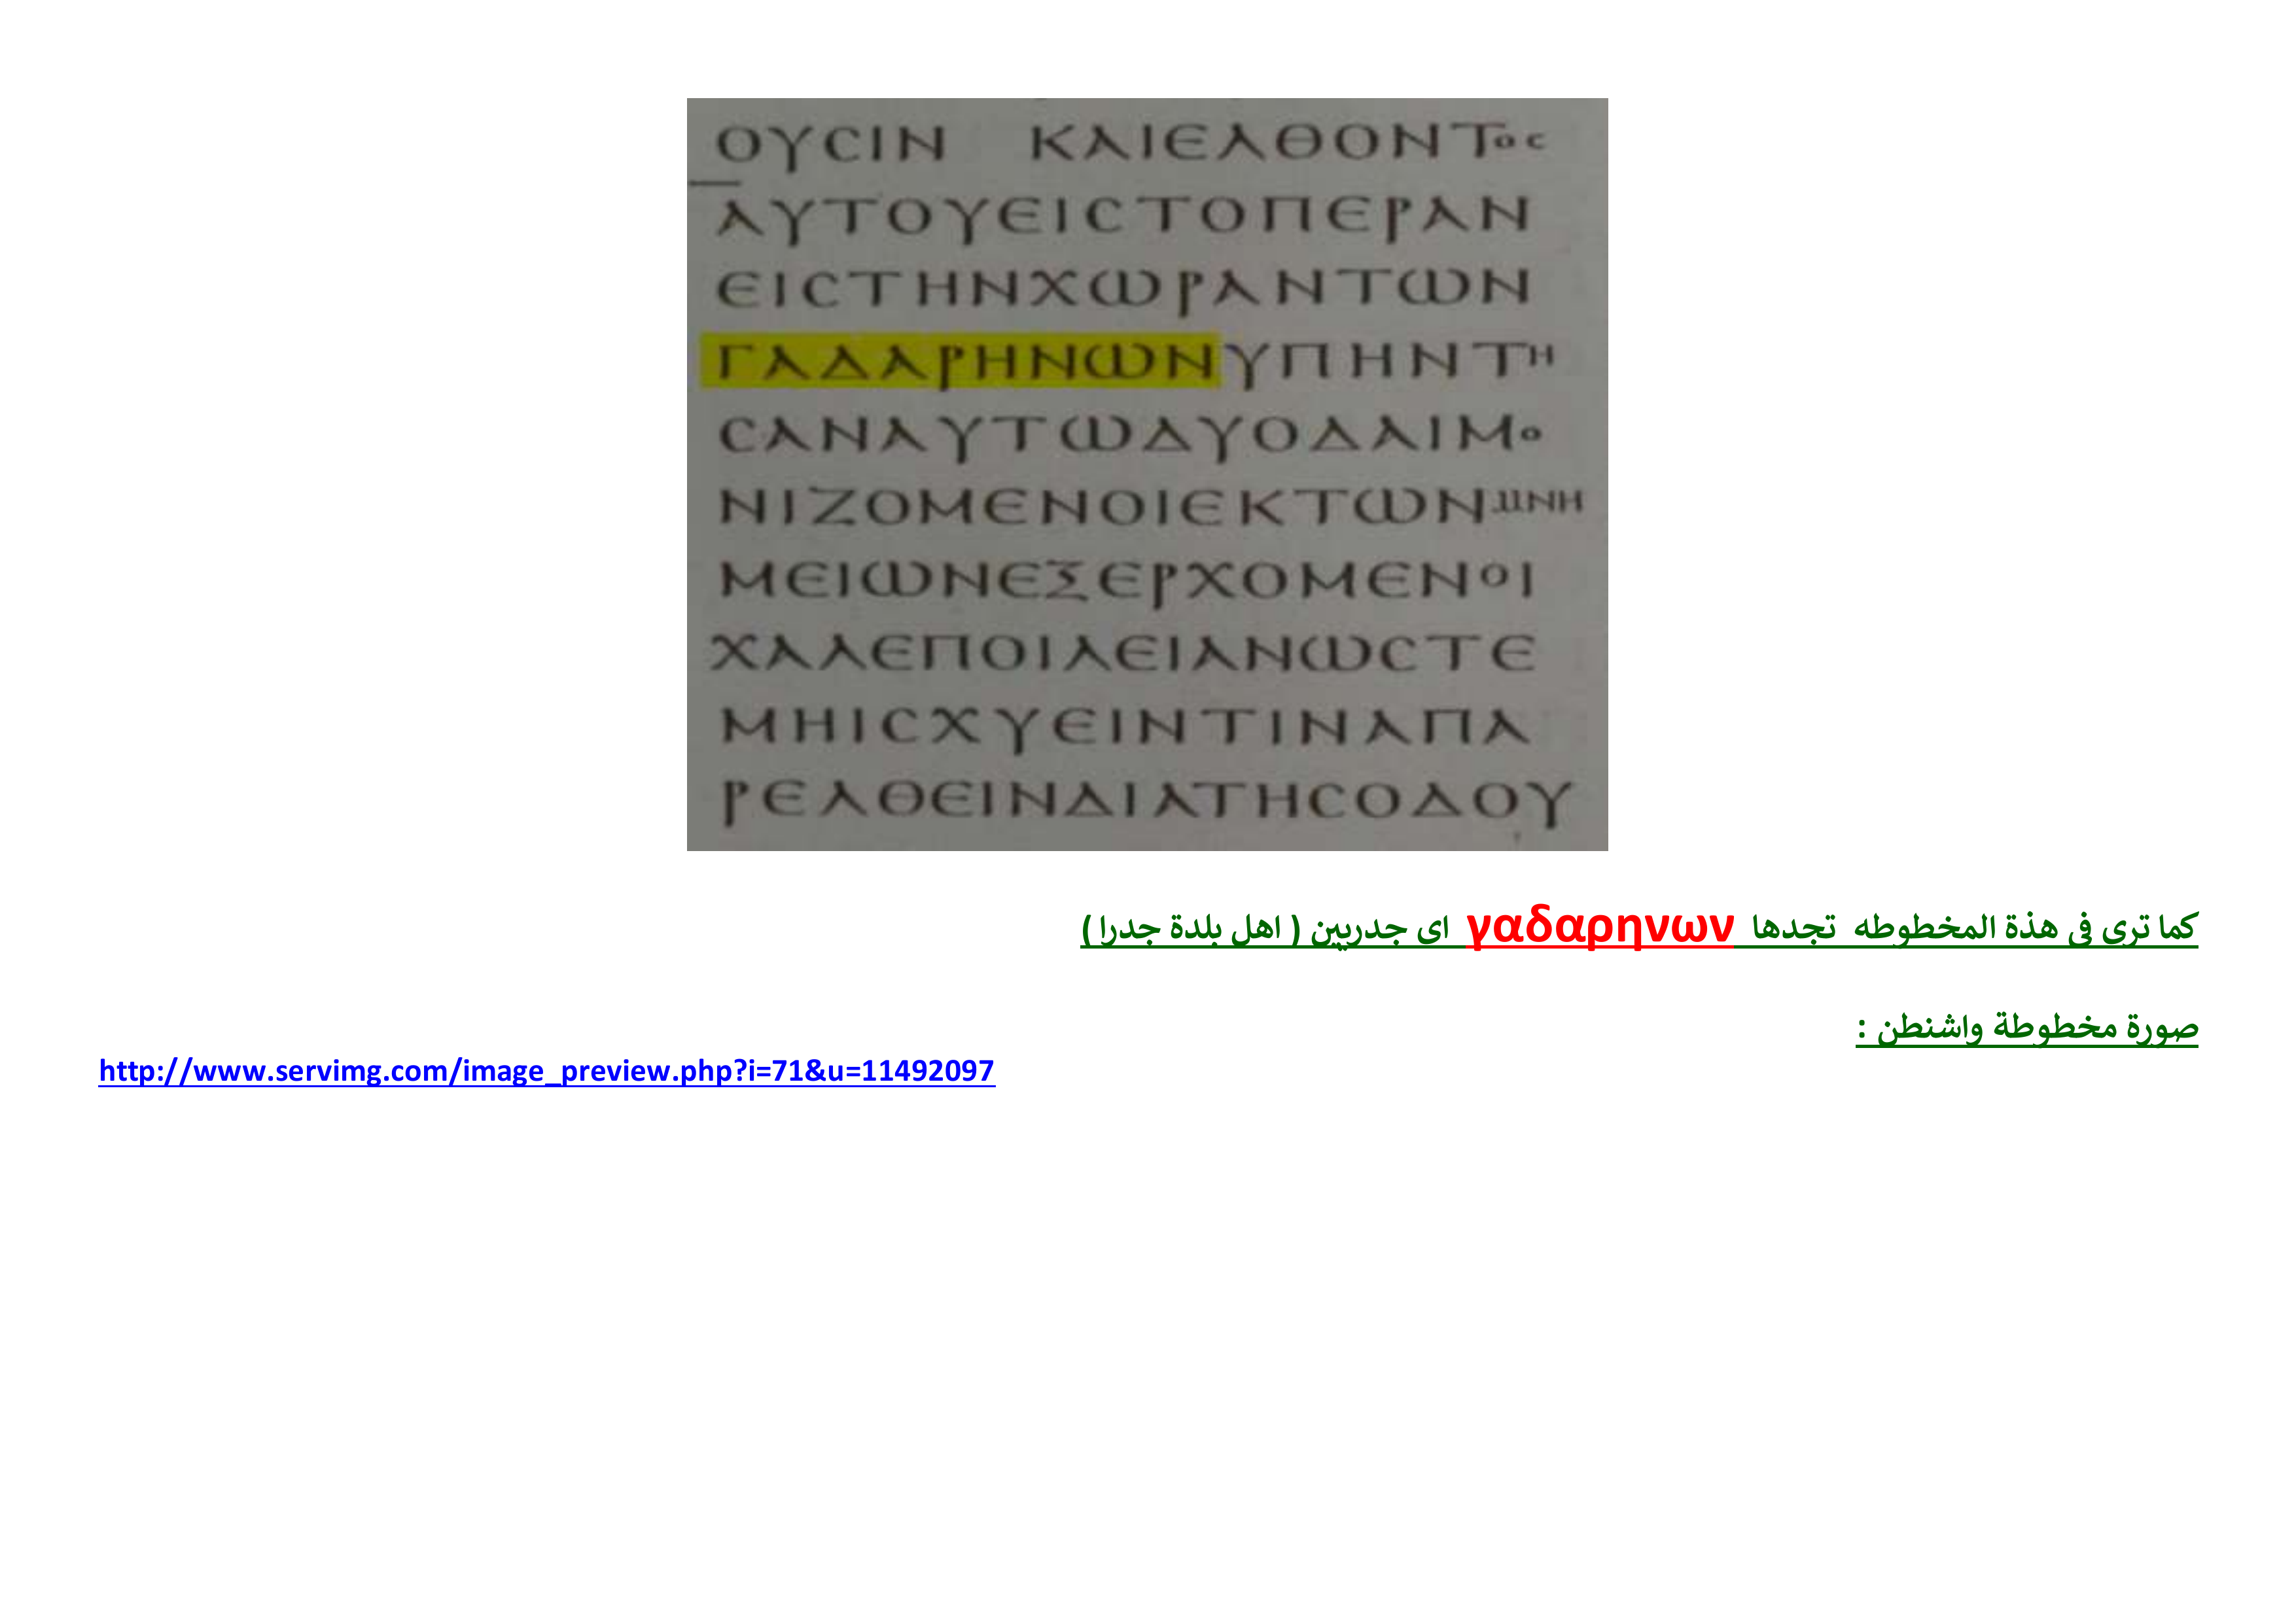 ΟΥCΙΝ ΚΑΙΕΛΘΟΝΤΟC
ΑΥΤΟΥΕΙCΤΟΠΕΡΑΝ
ΕΙCΤΗΝΧΩΡΑΝΤΩΝ
ΓΑΔΑΡΗΝΩΝΥΠΗΝΤΗ
CΑΝΑΥΤΩΔΥΟΔΑΙΜΟ
ΝΙΖΟΜΕΝΟΙΕΚΤΩΝΜΝΗ
ΜΕΙΩΝΕΞΕΡΧΟΜΕΝΟΙ
ΧΑΛΕΠΟΙΛΕΙΑΝΩCΤΕ
ΜΗΙCΧΥΕΙΝΤΙΝΑΠΑ
ΡΕΛΘΕΙΝΔΙΑΤΗCΟΔΟΥ
كما ترى فى هذة المخطوطه تجدها γαδαρηνων اى جدريين ( اهل بلدة جدرا )
صورة مخطوطة واشنطن :
http://www.servimg.com/image_preview.php?i=71&u=11492097